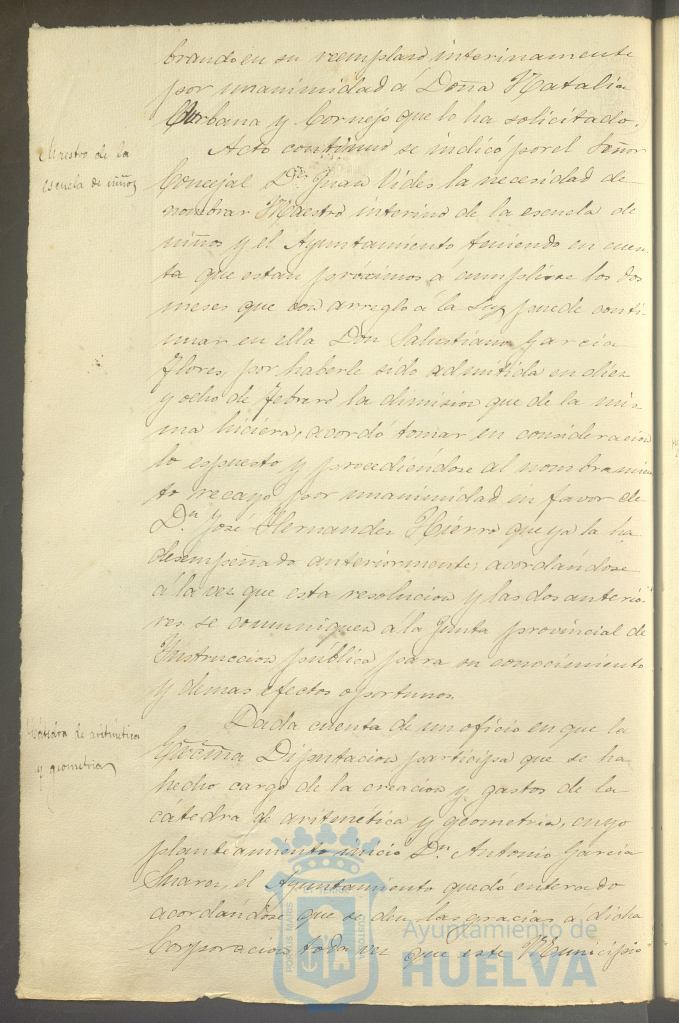 brando en su reemplazo interinamente
por unanimidad á Doña Natalia
Urbana y Cornejo que lo ha solicitado.
Maestro de la
escuela de niños
Acto continuo se indicó por el Señor
Concejal Dn. Juan Vides la necesidad de
nombrar Maestro interino de la escuela de
niños y el Ayuntamiento teniendo en cuen-
ta que estan próximos a cumplirse los dos
meses que con arreglo á la Ley puede conti-
nuar en ella Don Salustiano Garcia
Flores, por haberle sido admitida en diez
y ocho de Febrero la dimision que de la mis-
ma hiciera, acordó tomar en consideracion
lo espuesto y procediendose al nombramien-
to recayó por unanimidad en favor de
Dn. José Hernandez Hierro que ya la ha
desempeñado anteriormente; acordandose
á la vez que esta resolucion y las dos anterio-
res se comuniquen á la Junta provincial de
Instruccion pública para su conocimiento
y demas efectos oportunos.
Cátedra de aritmética
y geometria
Dada cuenta de un oficio en que la
Diputacion participa que se ha
hecho cargo de la creacion y gastos de la
cátedra de aritmética y geometria, cuyo
planteamiento inició Dn. Antonio Garcia
Suarez, el Ayuntamiento quedó enterado
acordandose que se den las gracias á dicha
Corporacion toda vez que este Municipio
Ayuntamiento de
HUELVA
PORTUS MARIS